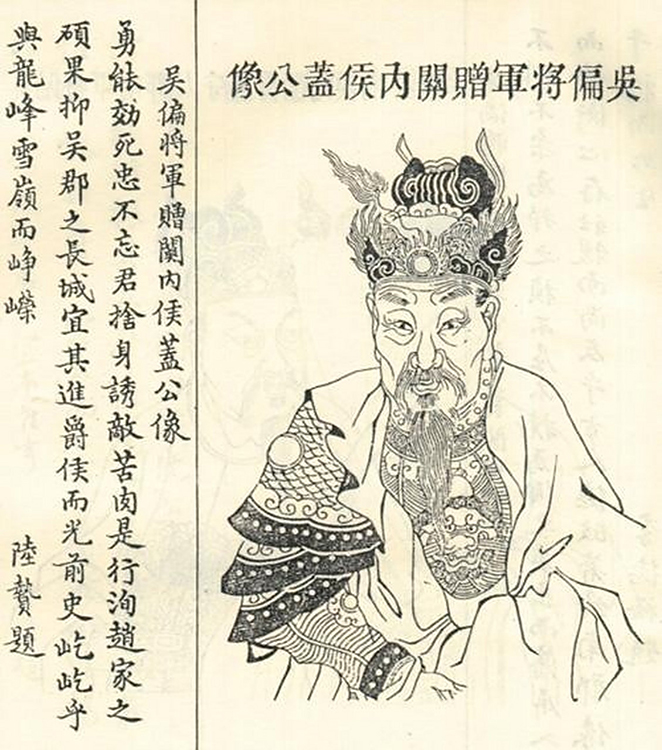 吳偏將軍贈關內侯蓋公像
吳偏將軍贈關內侯蓋公像
勇能効死忠不忘君捨身誘敵苦肉是行洵趙家之
碩果抑吳郡之長城宜其進爵侯而光前史屹屹乎
與龍峰雪嶺而崢嶸
陸贄題